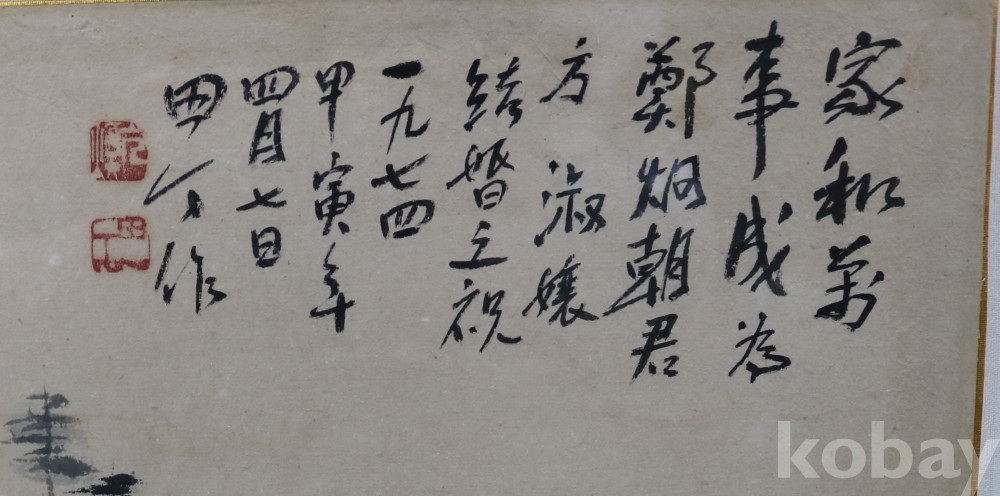 家和萬
事成為
鄭炯朝君
方淑孃
結婚之祝
一九七四
甲寅年
四月七日
田作
kobay